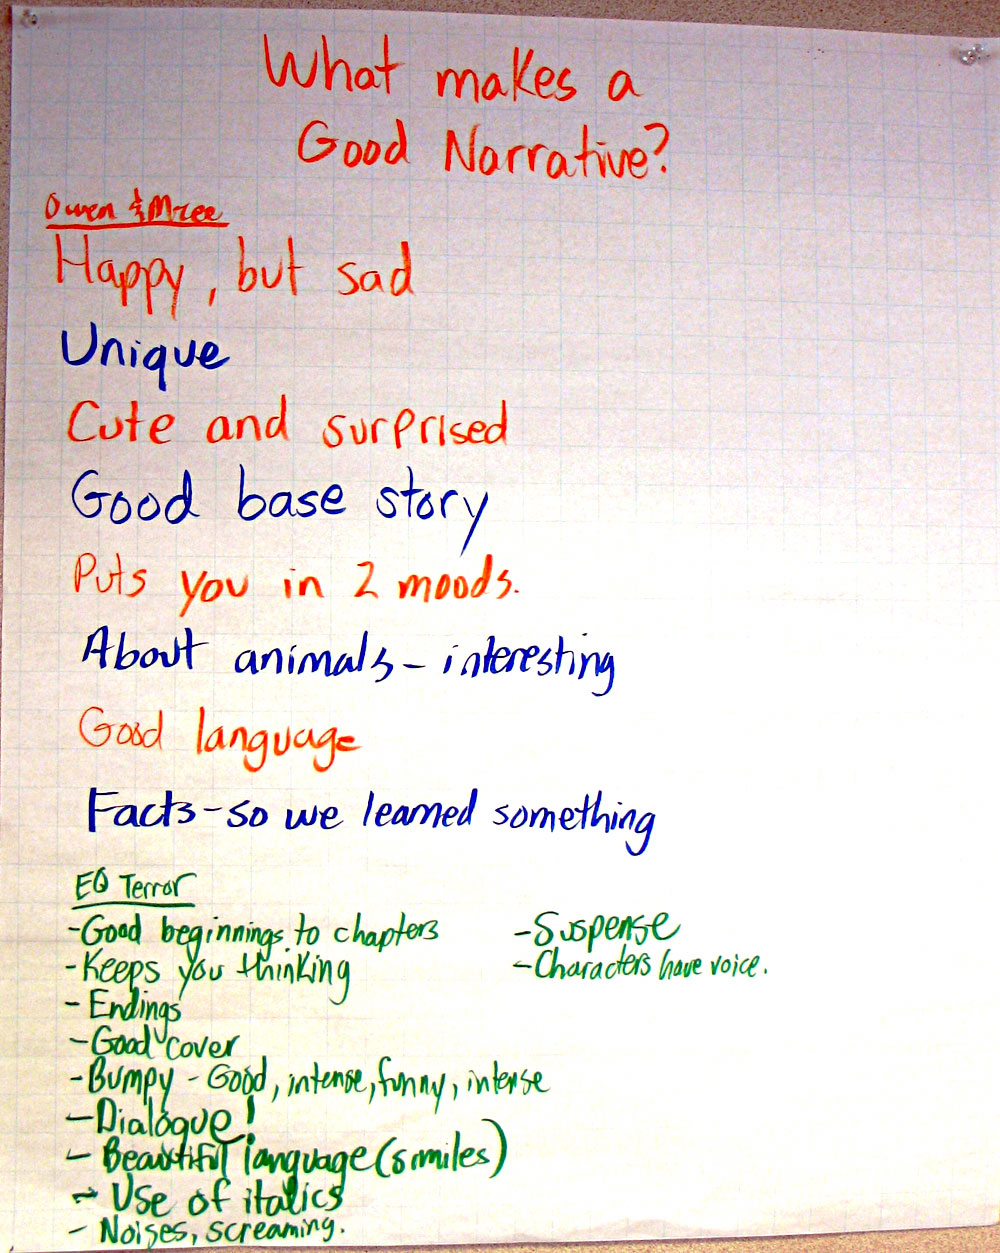 What makes a
Good Narrative?
Owen & Mzee
Happy, but sad
Unique
Cute and surprised
Good base story
Puts you in 2 moods.
About animals - interesting
Good language
Facts - so we learned something
EQ Terror
- Good beginnings to chapters
- Keeps you thinking
- Endings
- Good cover
- Bumpy - Good, intense, funny, intense
- Dialogue!
- Beautiful language (similes)
- Use of italics
- Noises, screaming.
- Suspense
- Characters have voice.